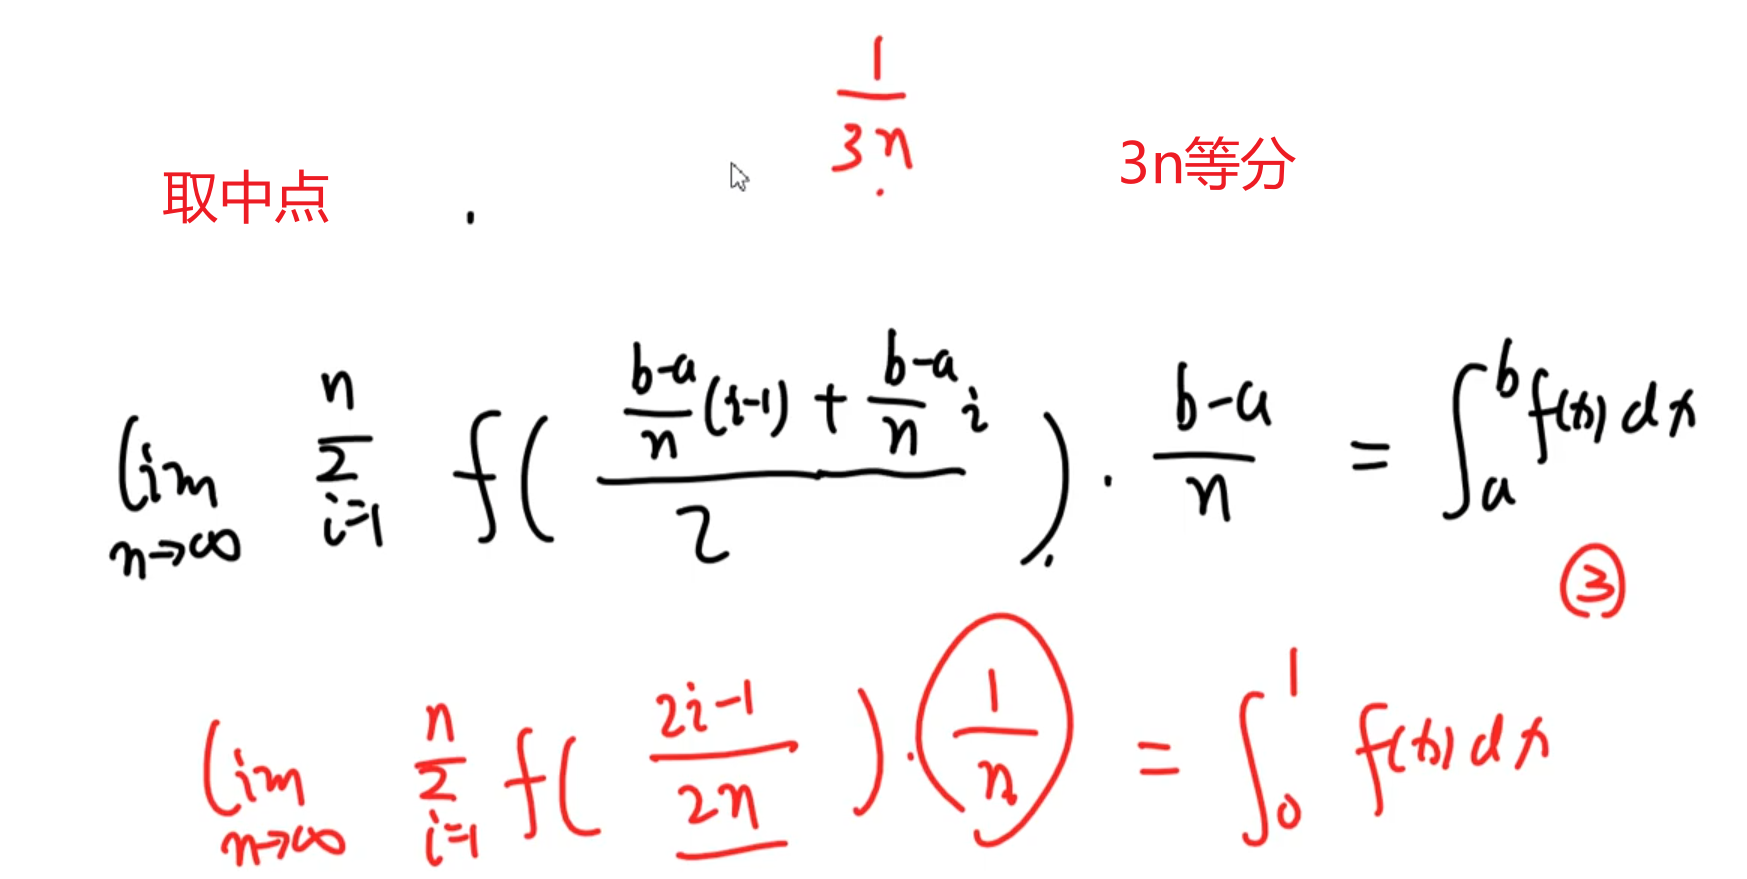 1/3n
取中点
3n等分
lim n→∞ n Σ i=1 f( (b-a/n (i-1) + b-a/n i) / 2 ) · b-a/n = ∫_a^b f(x) dx
③
lim n→∞ n Σ i=1 f( 2i-1 / 2n ) · 1/n = ∫_0^1 f(x) dx